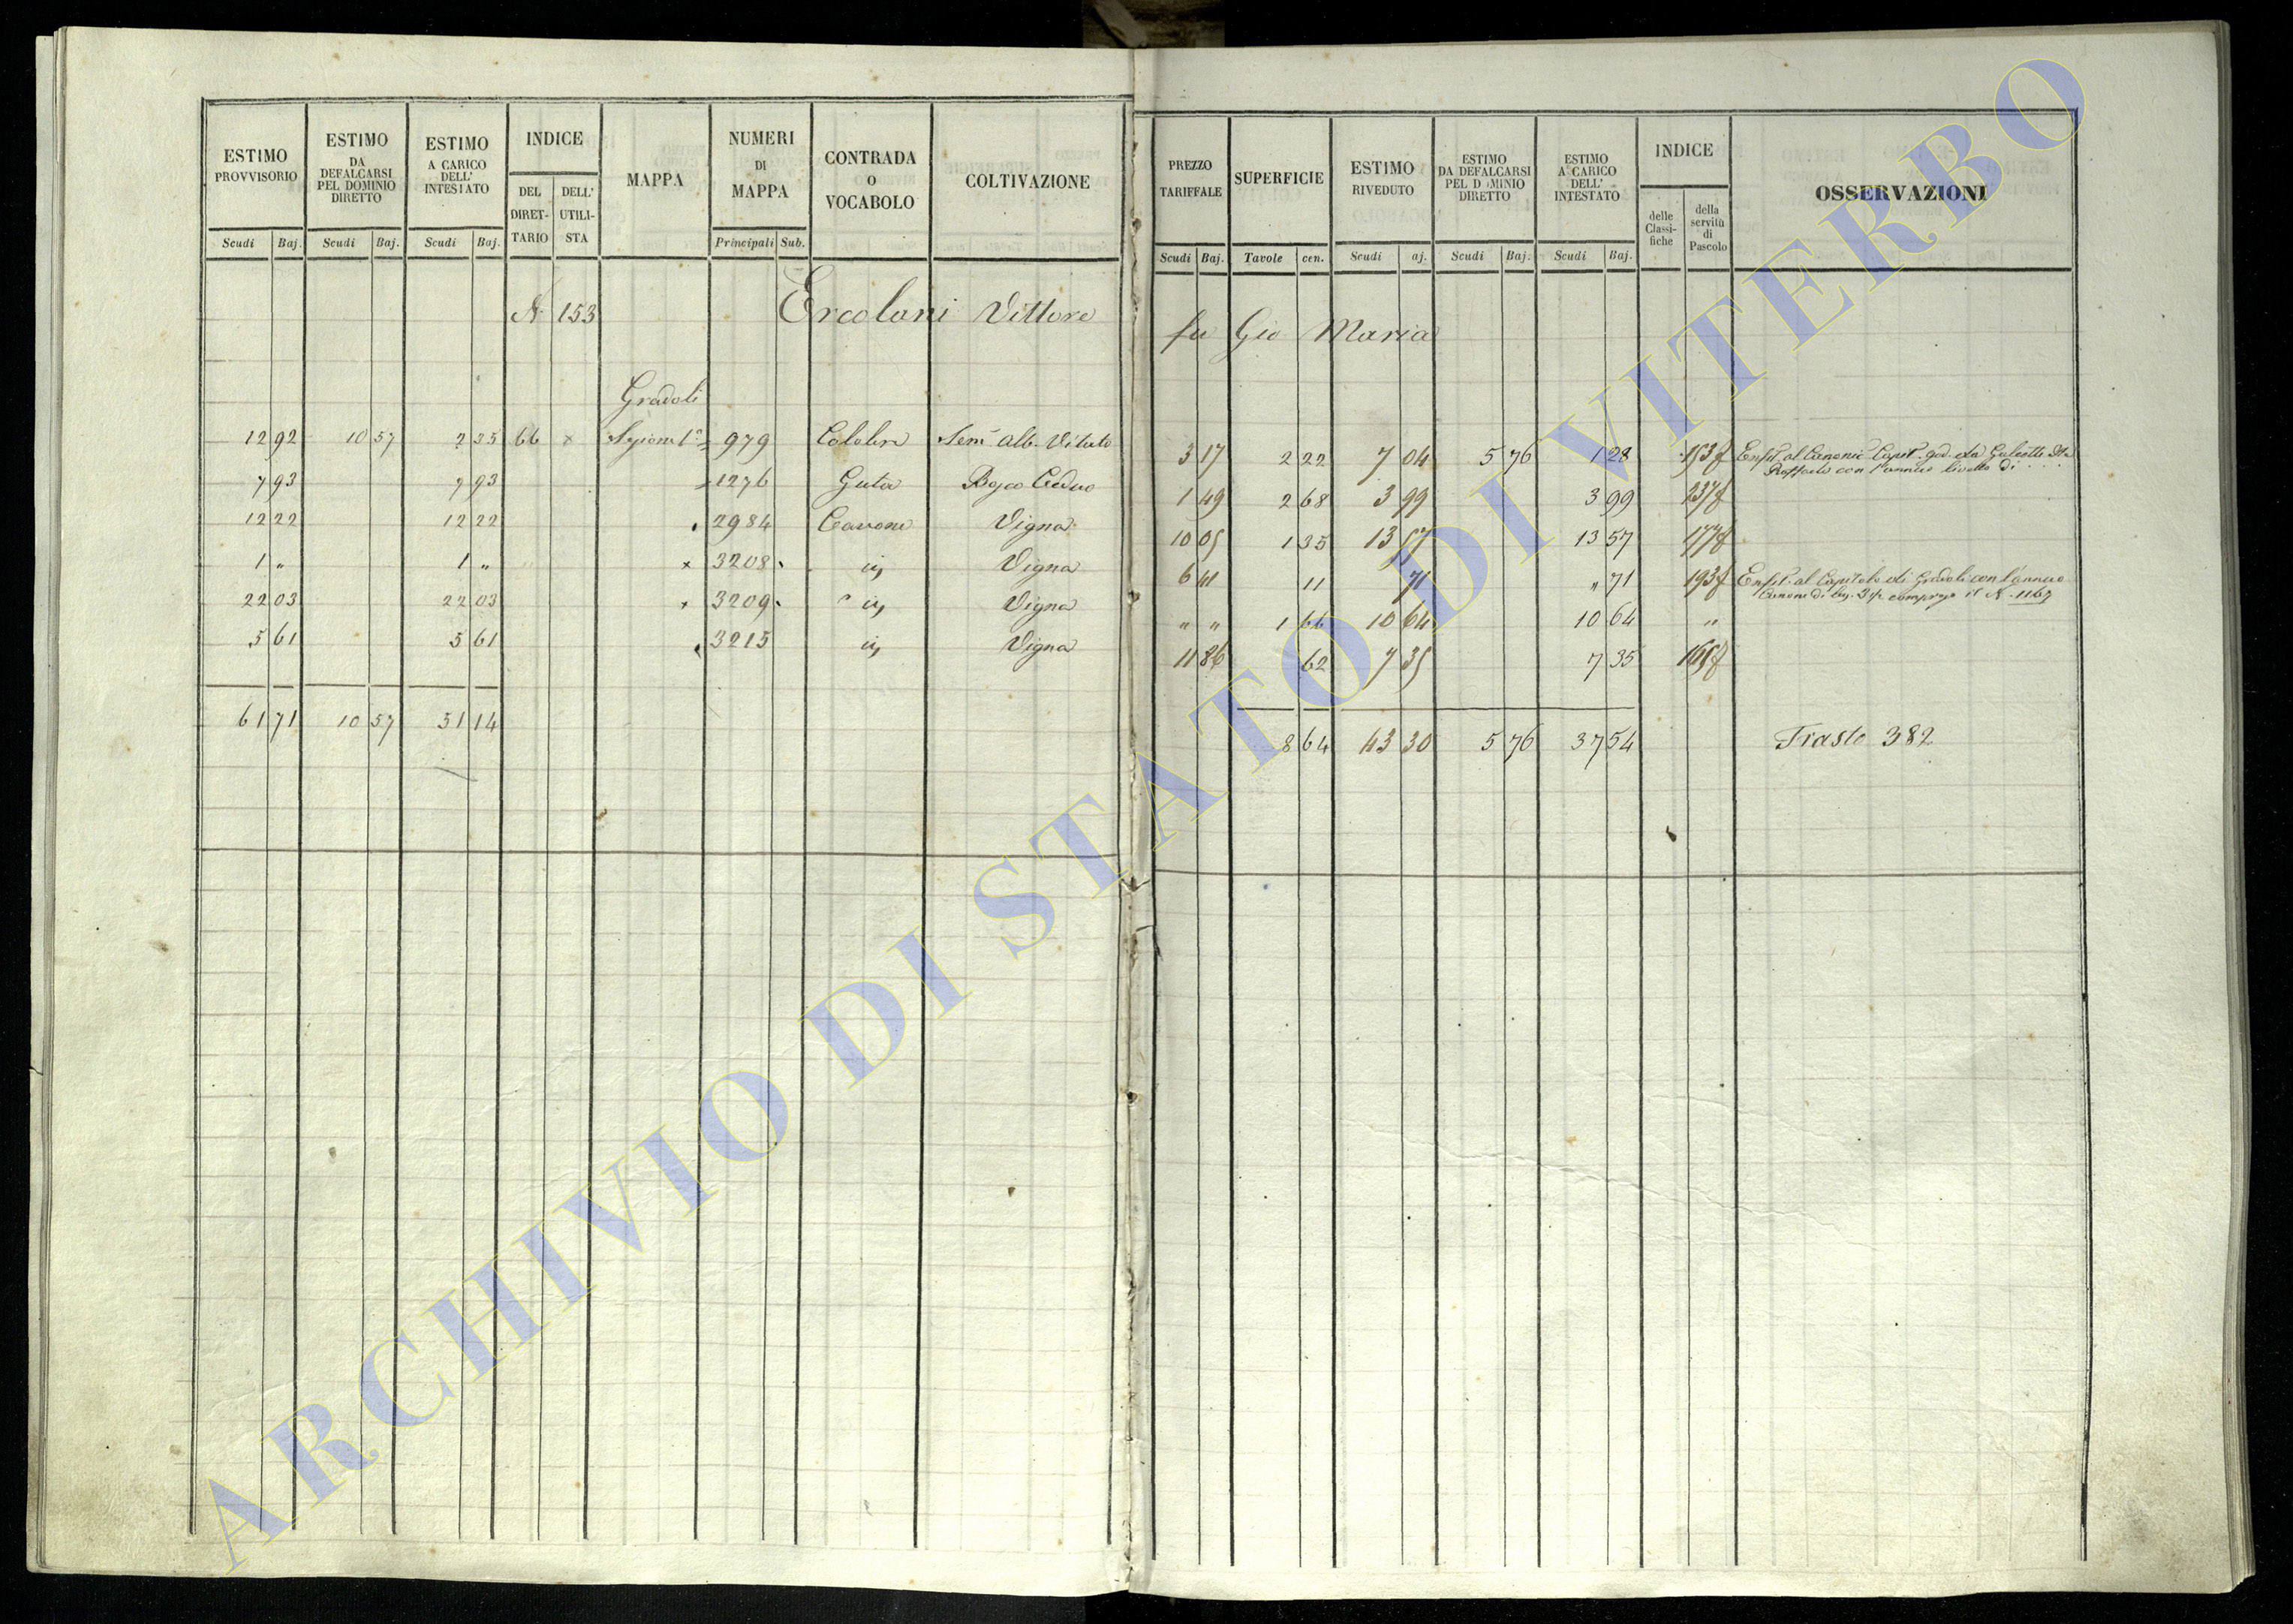 ESTIMO PROVVISORIO | ESTIMO DA DEFALCARSI PEL DOMINIO DIRETTO | ESTIMO A CARICO DELL' INTESTATO | INDICE | MAPPA | NUMERI DI MAPPA | CONTRADA O VOCABOLO | COLTIVAZIONE
DEL DIRETTARIO | DELL' UTILISTA
Scudi | Baj. | Scudi | Baj. | Scudi | Baj. | Principali | Sub.
N 153 Ercolani Vittore
Gradoli
12 92 | 10 57 | 2 35 | 66 | x | Sezione 1a | 979 | Calabra | Sem Alb. Vitato
7 93 | 7 93 | 1276 | Guta | Bosco Ceduo
12 22 | 12 22 | 2984 | Cavone | Vigna
1 " | 1 " | x | 3208 | id | Vigna
22 03 | 22 03 | x | 3209 | id | Vigna
5 61 | 5 61 | 3215 | id | Vigna
61 71 | 10 57 | 51 14
PREZZO TARIFFALE | SUPERFICIE | ESTIMO RIVEDUTO | ESTIMO DA DEFALCARSI PEL D MINIO DIRETTO | ESTIMO A CARICO DELL' INTESTATO | INDICE | OSSERVAZIONI
delle Classifiche | della servitù di Pascolo
Scudi | Baj. | Tavole | cen. | Scudi | aj. | Scudi | Baj. | Scudi | Baj.
fu Gio Maria
3 17 | 2 22 | 7 04 | 5 76 | 1 28 | 153 | Enfit. al Canonic Capit. god. da Galeotti
Raffaele con l'annuo livello di . . . .
1 49 | 2 68 | 3 99 | 3 99 | 237
10 05 | 1 35 | 13 57 | 13 57 | 177
6 41 | 11 | 71 | " 71 | 193 | Enfit. al Capitolo di Gradoli con l'annuo
Canone di baj. compreso il N. 1167
" " | 1 66 | 10 64 | 10 64 | "
11 86 | 62 | 7 35 | 7 35 | 165
8 64 | 43 30 | 5 76 | 37 54 | Trasto 382
ARCHIVIO DI STATO DI VITERBO